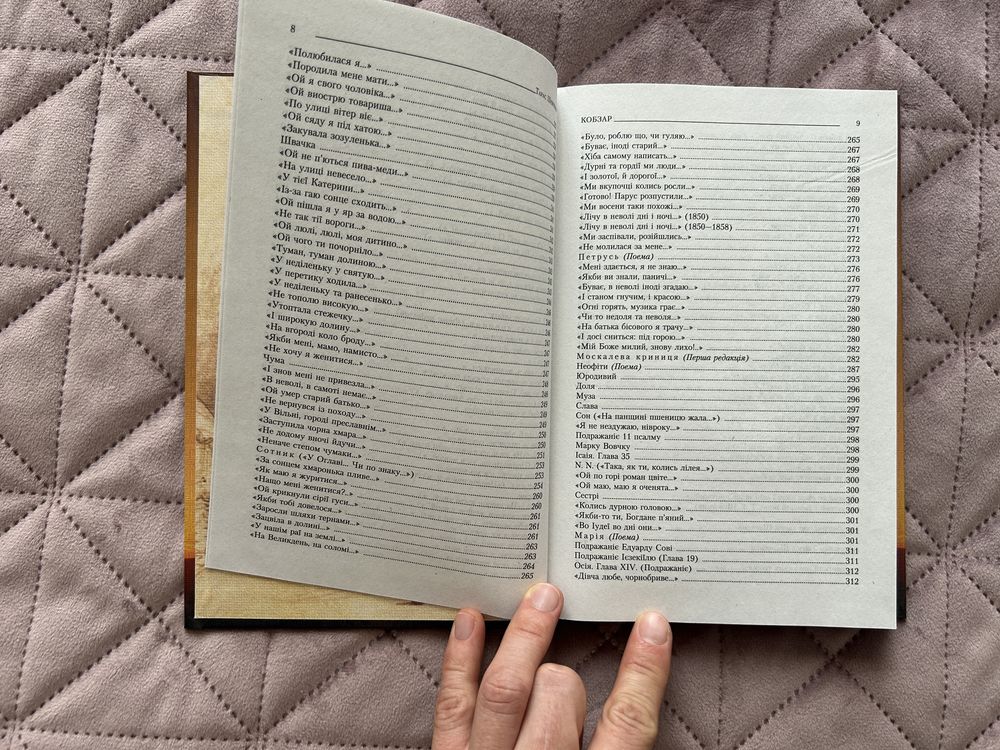 8
«Полюбилася я...»
«Породила мене мати...»
«Ой я свого чоловіка...»
«Ой виострю товариша...»
«По улиці вітер віє...»
«Ой сяду я під хатою...»
«Закувала зозуленька...»
Швачка
«Ой не п'ються пива-меди...»
«На улиці невесело...»
«У тієї Катерини...»
«Із-за гаю сонце сходить...»
«Ой пішла я у яр за водою...»
«Не так тії вороги...»
«Ой люлі, люлі, моя дитино...»
«Ой чого ти почорніло...»
«Туман, туман долиною...»
«У неділеньку у святую...»
«У перетику ходила...»
«У неділеньку та ранесенько...»
«Не тополю високую...»
«Утоптала стежечку...»
«І широкую долину...»
«На вгороді коло броду...»
«Якби мені, мамо, намисто...»
«Не хочу я женитися...»
Чума
«І знов мені не привезла...»
«В неволі, в самоті немає...»
«Ой умер старий батько...»
«Не вернувся із походу...»
«У Вільні, городі преславнім...» 250
«Заступила чорна хмара... 250
«Не додому вночі йдучи...» 251
«Неначе степом чумаки...» 253
Сотник («У Оглаві.. Чи по знаку...») 254
«За сонцем хмаронька пливе...» 260
«Як маю я журитися...» 260
«Нащо мені женитися?.. 261
«Ой крикнули сірії гуси...» 261
«Якби тобі довелося...» 261
«Заросли шляхи тернами...» 263
«Зацвіла в долині...» 263
«У нашім раї на землі...» 264
«На Великдень, на соломі...» 265
КОБЗАР 9
«Було, роблю що, чи гуляю...» 265
«Буває, іноді старий...» 267
«Хіба самому написать...» 267
«Дурні та гордії ми люди...» 268
«І золотої, й дорогої...» 268
«Ми вкупочці колись росли...» 269
«Готово! Парус розпустили...» 269
«Ми восени таки похожі...» 270
«Лічу в неволі дні і ночі...» (1850) 270
«Лічу в неволі дні і ночі...» (1850—1858) 271
«Ми заспівали, розійшлись...» 272
«Не молилася за мене...» 272
Петрусь (Поема) 273
«Мені здається, я не знаю...» 276
«Якби ви знали, паничі...» 276
«Буває, в неволі іноді згадаю...» 277
«І станом гнучим, і красою...» 279
«Огні горять, музика грає...» 280
«Чи то недоля та неволя...» 280
«На батька бісового я трачу...» 280
«І досі сниться: під горою...» 280
«Мій Боже милий, знову лихо!..» 282
Москалева криниця (Перша редакція) 282
Неофіти (Поема) 287
Юродивий 295
Доля 296
Муза 296
Слава 297
Сон («На панщині пшеницю жала...») 297
«Я не нездужаю, нівроку...» 297
Подражаніє 11 псалму 298
Марку Вовчку 298
Ісаія. Глава 35 299
N. N. («Така, як ти, колись лілея...») 299
«Ой по горі роман цвіте...» 300
«Ой маю, маю я оченята...» 300
Сестрі 300
«Колись дурною головою...» 301
«Якби-то ти, Богдане п'яний...» 301
«Во Іудеї во дні они...» 301
Марія (Поема) 301
Подражаніє Едуарду Сові 311
Подражаніє Ієзекіїлю (Глава 19) 311
Осія. Глава XIV. (Подражаніє) 312
«Дівча любе, чорнобриве...» 312